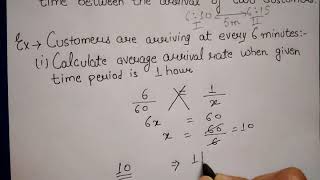 time between the arrival of two customers.
6:10 6:15
I 5m II
Ex → Customers are arriving at every 6 minutes:-
(i) Calculate average arrival rate when given
time period is 1 hour
6/60 1/x
6x = 60
x = 60/6 = 10
10 ⇒ 1